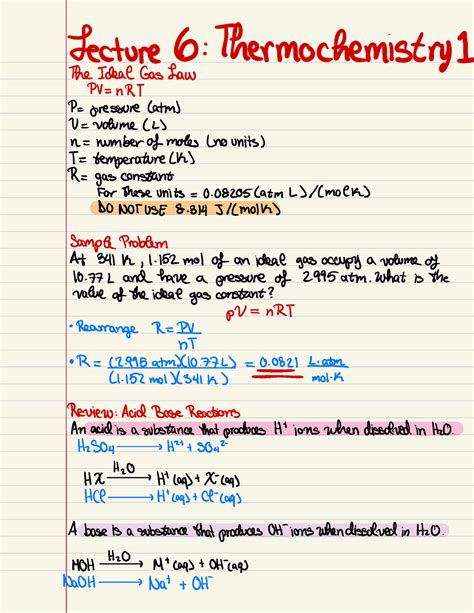 Lecture 6: Thermochemistry 1
The Ideal Gas Law
PV = nRT
P = pressure (atm)
V = volume (L)
n = number of moles (no units)
T = temperature (K)
R = gas constant
For these units = 0.08205 (atm L)/(mol K)
DO NOT USE 8.814 J/(mol K)
Sample Problem
At 341 K, 1.152 mol of an ideal gas occupy a volume of
10.77 L and have a pressure of 2.995 atm. What is the
value of the ideal gas constant?
pV = nRT
• Rearrange R = PV
nT
• R = (2.995 atm)(10.77 L) = 0.0821 L·atm
(1.152 mol)(341 K) mol·K
Review: Acid Base Reactions
An acid is a substance that produces H⁺ ions when dissolved in H₂O.
H₂SO₄ → H²⁺ + SO₄²⁻
H₂O
HX → H⁺(aq) + X⁻(aq)
HCl → H⁺(aq) + Cl⁻(aq)
A base is a substance that produces OH⁻ ions when dissolved in H₂O.
H₂O
MOH → M⁺(aq) + OH⁻(aq)
NaOH → Na⁺ + OH⁻